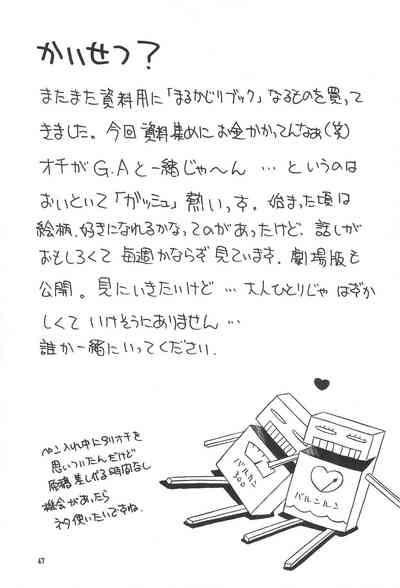 かいせつ?
またまた資料用に「まるかじりブック」なるものを買って
きました。今回資料集めにお金かかってんなぁ(笑)
オチがG.Aと一緒じゃ〜ん …というのは
おいといて「ガッシュ」熱いっす。始まった頃は
絵柄、好きになれるかな、てのがあったけど、話しが
おもしろくて毎週かならず見ています。劇場版も
公開。見にいきたいけど…大人ひとりじゃはずか
しくていけそうにありません…
誰か一緒にいってください。
ペン入れ中にタリオチを
思いついたんだけど
原稿差しかる時間なし
機会があったら
ネタ使いたいですね。
バルカン
300
バルンルン
67